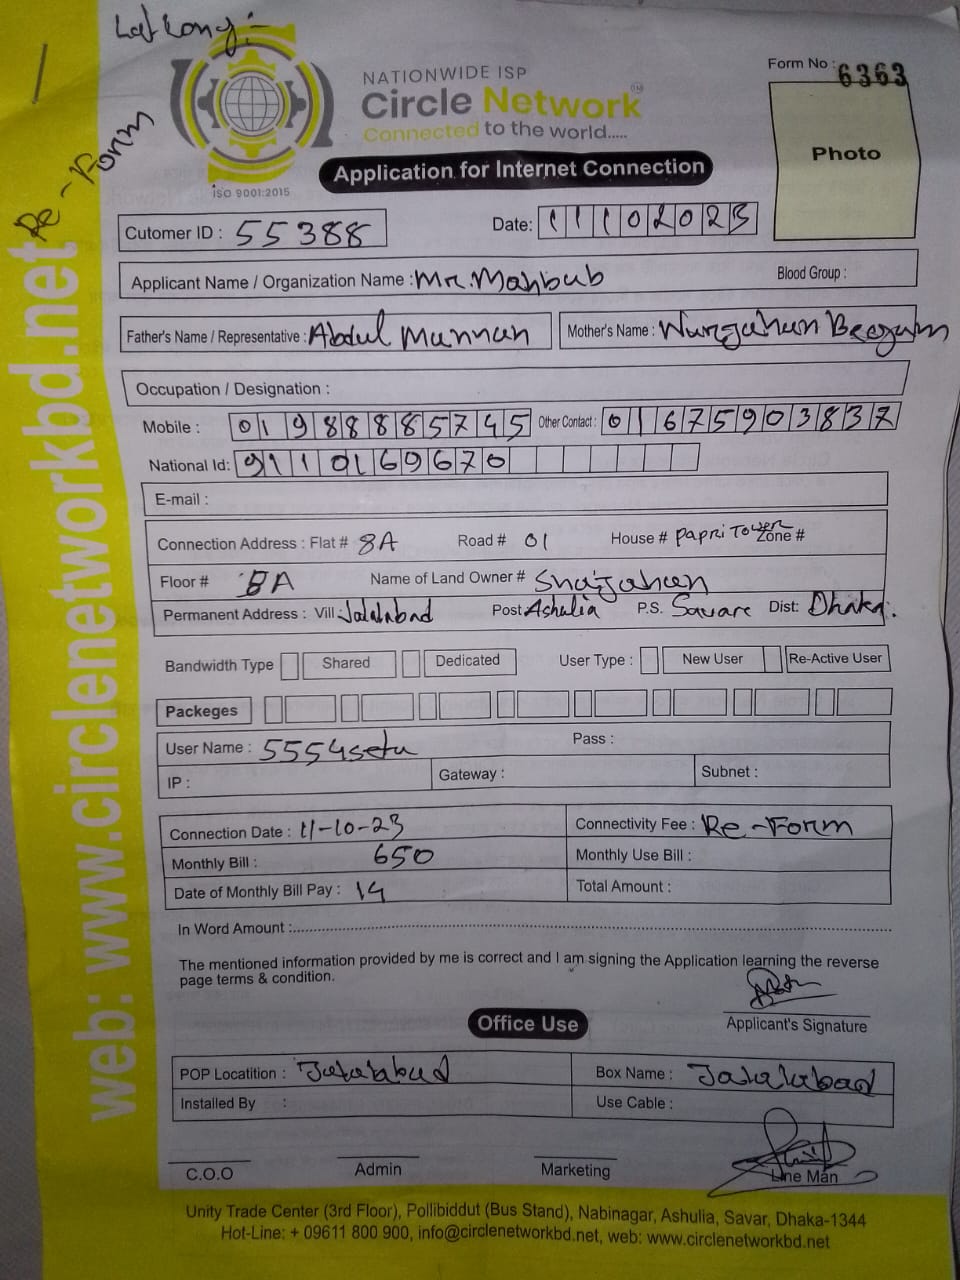 Lat Long:-
Re-Form
NATIONWIDE ISP
Circle Network
Connected to the world.....
ISO 9001:2015
Form No : 6363
Photo
Application for Internet Connection
Cutomer ID : 55388
Date: 11102023
Applicant Name / Organization Name : Mr. Mahbub Blood Group :
Father's Name / Representative : Abdul Mannan Mother's Name : Nurjahan Beegum
Occupation / Designation :
Mobile : 01988885745 Other Contact : 01675903837
National Id: 9110169670
E-mail :
Connection Address : Flat # 8A Road # 01 House # Papri Tower Zone #
Floor # 8A Name of Land Owner # Shajahan
Permanent Address : Vill Jalalabad Post Ashulia P.S. Savar Dist: Dhaka.
Bandwidth Type Shared Dedicated User Type : New User Re-Active User
Packeges
User Name : 5554setu Pass :
IP : Gateway : Subnet :
Connection Date : 11-10-23 Connectivity Fee : Re-Form
Monthly Bill : 650 Monthly Use Bill :
Date of Monthly Bill Pay : 14 Total Amount :
In Word Amount :
The mentioned information provided by me is correct and I am signing the Application learning the reverse
page terms & condition.
Applicant's Signature
Office Use
POP Locatition : Jalalabad Box Name : Jalalabad
Installed By : Use Cable :
C.O.O Admin Marketing Line Man
Unity Trade Center (3rd Floor), Pollibiddut (Bus Stand), Nabinagar, Ashulia, Savar, Dhaka-1344
Hot-Line: + 09611 800 900, info@circlenetworkbd.net, web: www.circlenetworkbd.net
web: www.circlenetworkbd.net